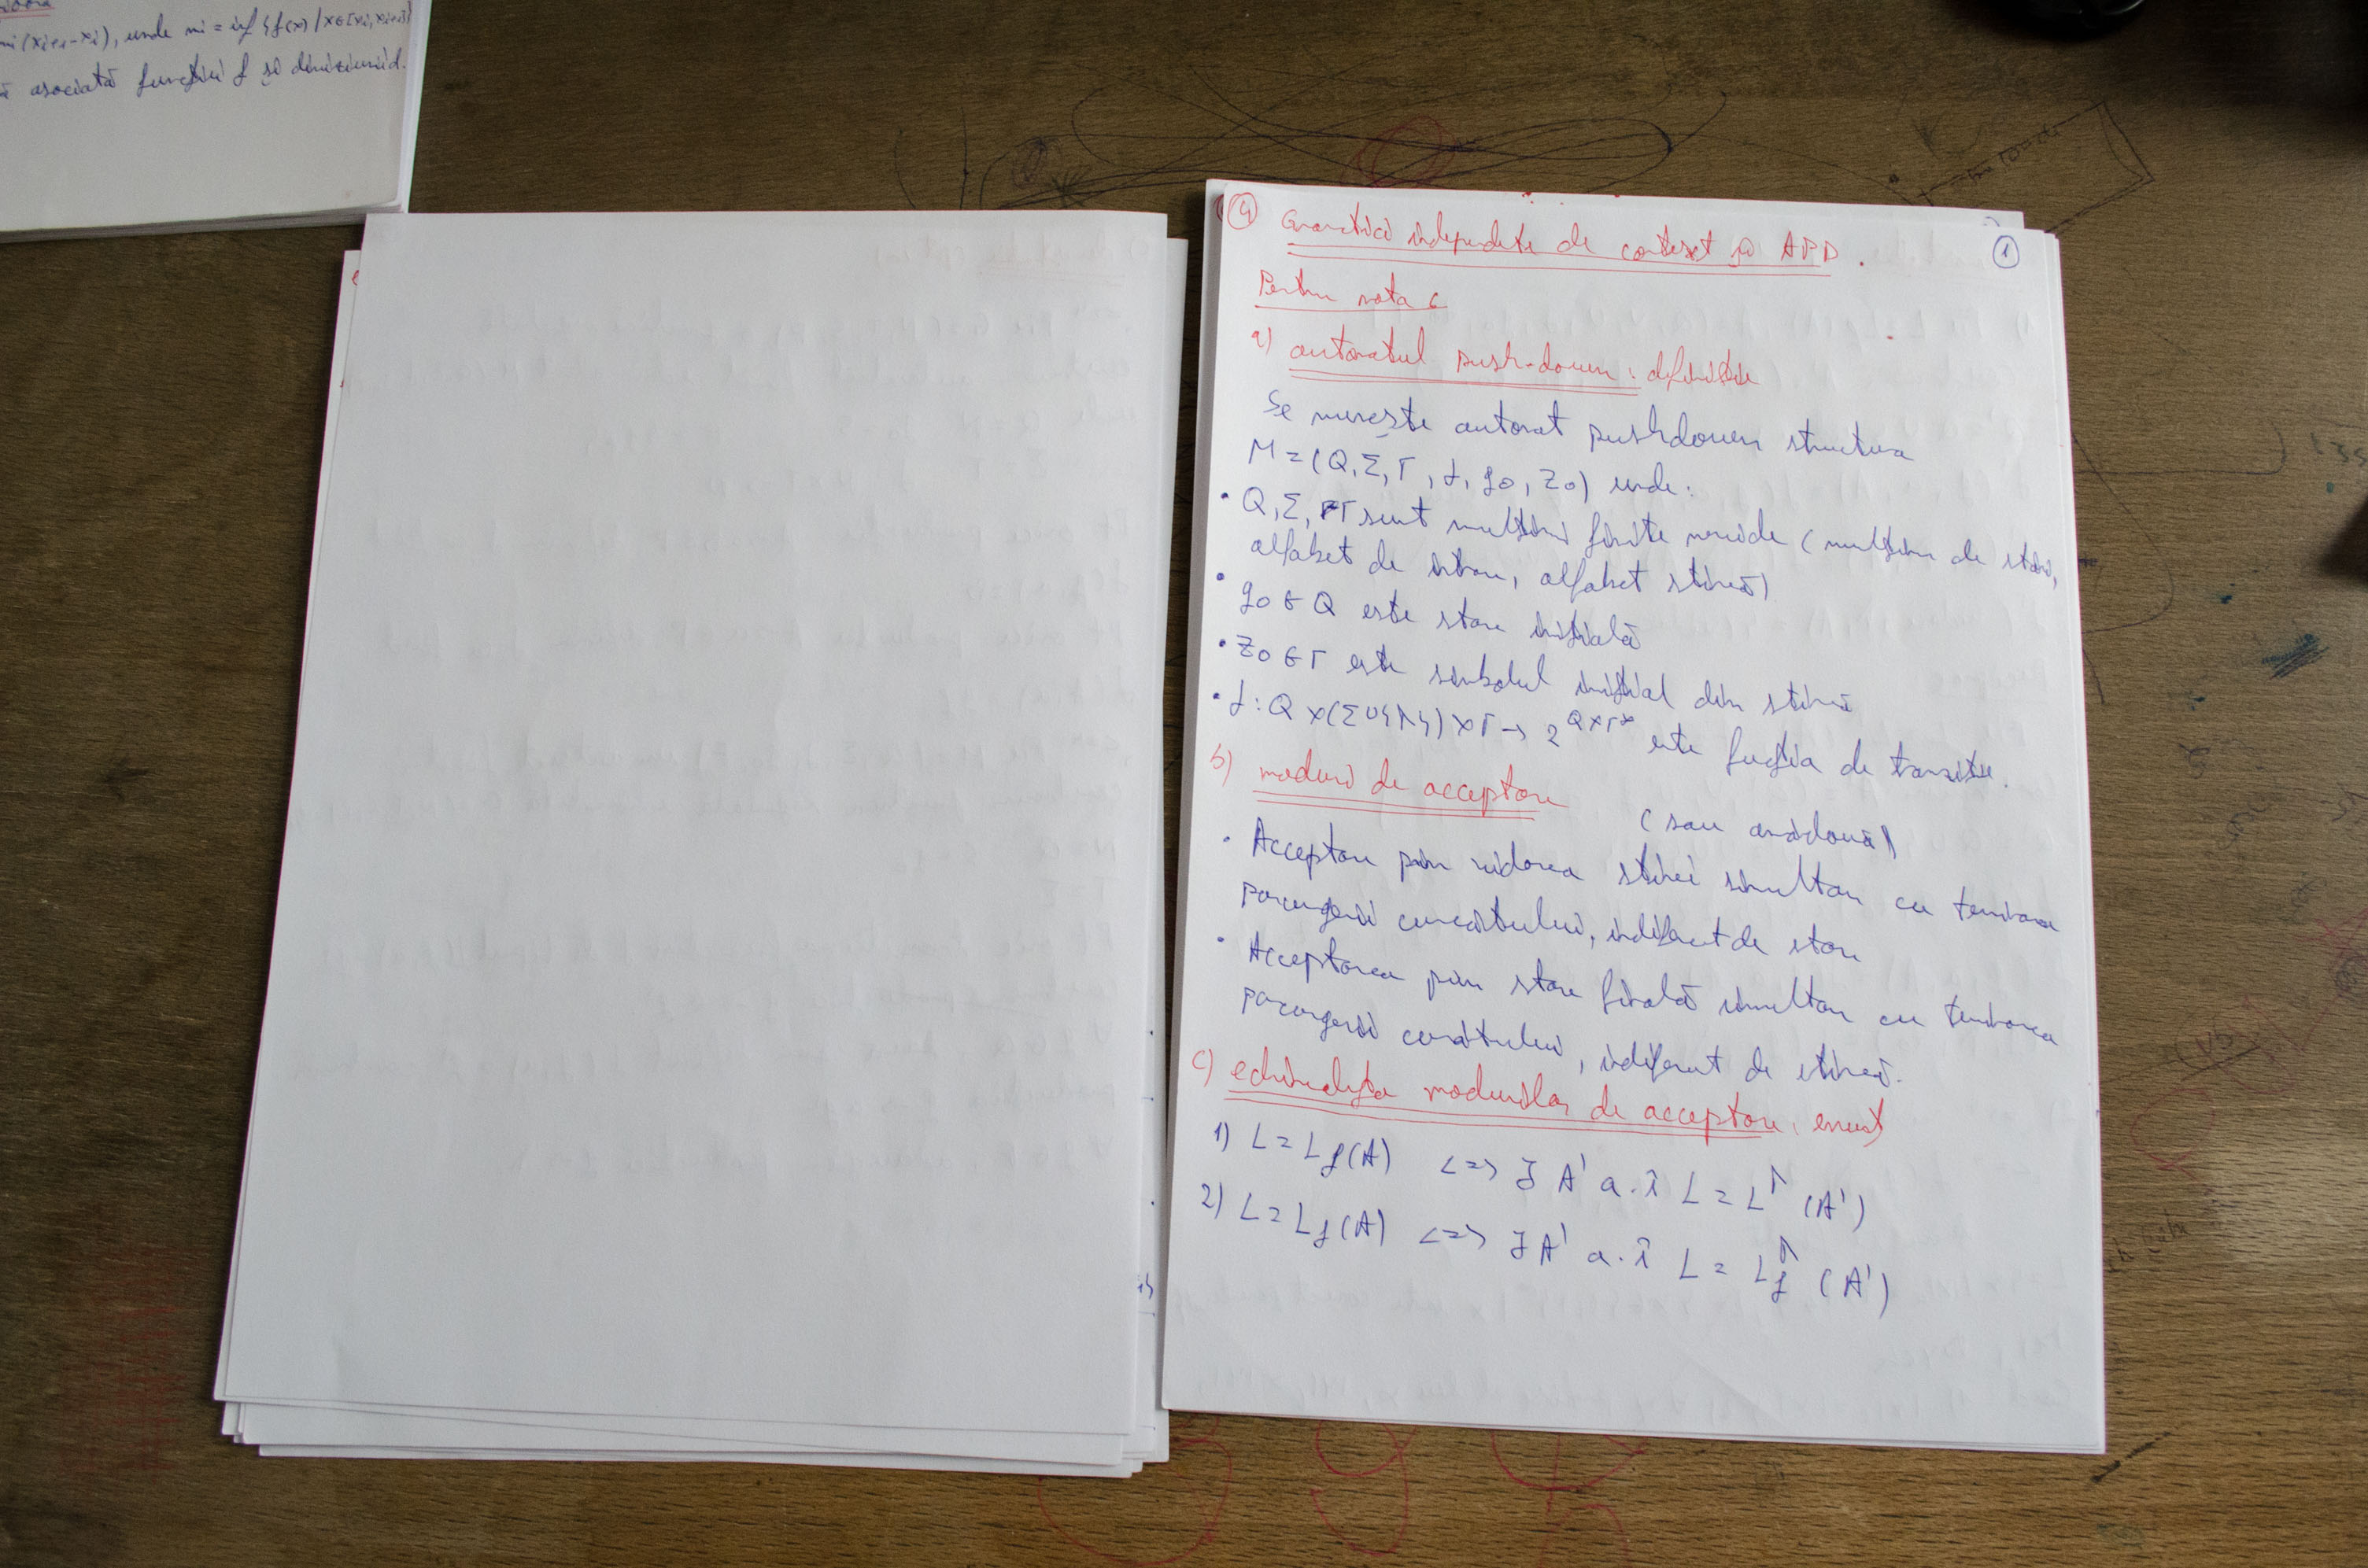 mi(xi+1-xi), unde mi = inf {f(x) / x∈[xi, xi+1]}
ă asociată funcției f și diviziunii d.
④ Gramatici independente de context și APD.
①
Pentru nota 6
a) automatul push-down: definiție
Se numește automat pushdown structura
M = (Q, Σ, Γ, δ, q0, Z0) unde:
• Q, Σ, Γ sunt mulțimi finite nevide (mulțimea de stări,
alfabet de intrare, alfabet stivă)
• q0 ∈ Q este stare inițială
• Z0 ∈ Γ este simbolul inițial din stivă
• δ: Q x (Σ ∪ {λ}) x Γ → 2^QxΓ* este funcția de tranziție.
b) moduri de acceptare
(sau amândouă)
• Acceptare prin vidarea stivei simultan cu terminarea
parcurgerii cuvântului, indiferent de stare
• Acceptarea prin stare finală simultan cu terminarea
parcurgerii cuvântului, indiferent de stivă.
c) echivalența modurilor de acceptare: enunț
1) L = Lf(A) <=> ∃ A' a.î L = L^λ (A')
2) L = Lf(A) <=> ∃ A' a.î L = Lf^λ (A')